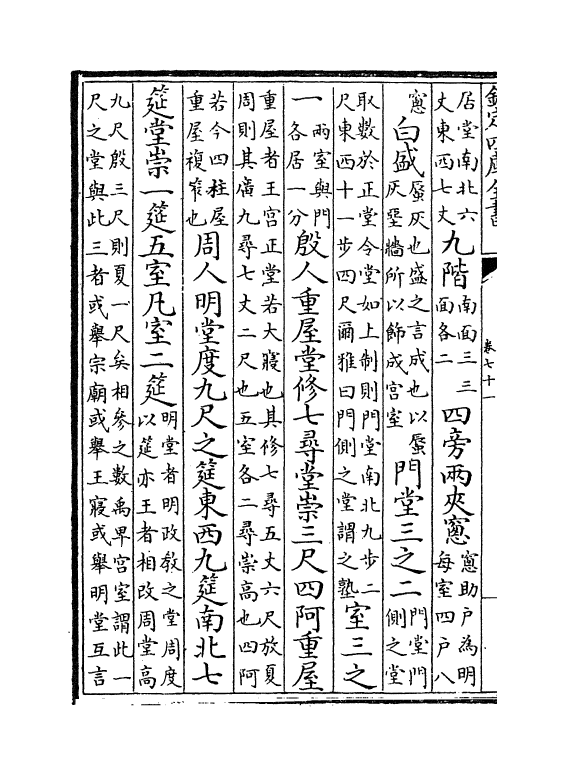 欽定四庫全書
卷七十一
居堂南北六
丈東西七丈
九階
南面三三
面各二
四旁兩夾窻
窻助戶為明
每室四戶八
窻
白盛
蜃灰也盛之言成也以蜃
灰堊牆所以飾成宮室
門堂三之二
門堂門
側之堂
取數於正堂今堂如上制則門堂南北九步二
尺東西十一步四尺爾雅曰門側之堂謂之塾
室三之
一
兩室與門
各居一分
殷人重屋堂修七尋堂崇三尺四阿重屋
重屋者王宮正堂若大寢也其修七尋五丈六尺放夏
周則其廣九尋七丈二尺也五室各二尋崇高也四阿
若今四柱屋
重屋複笮也
周人明堂度九尺之筵東西九筵南北七
筵堂崇一筵五室凡室二筵
明堂者明政教之堂周度
以筵亦王者相改周堂高
九尺殷三尺則夏一尺矣相參之數禹卑宮室謂此一
尺之堂與此三者或舉宗廟或舉王寢或舉明堂互言